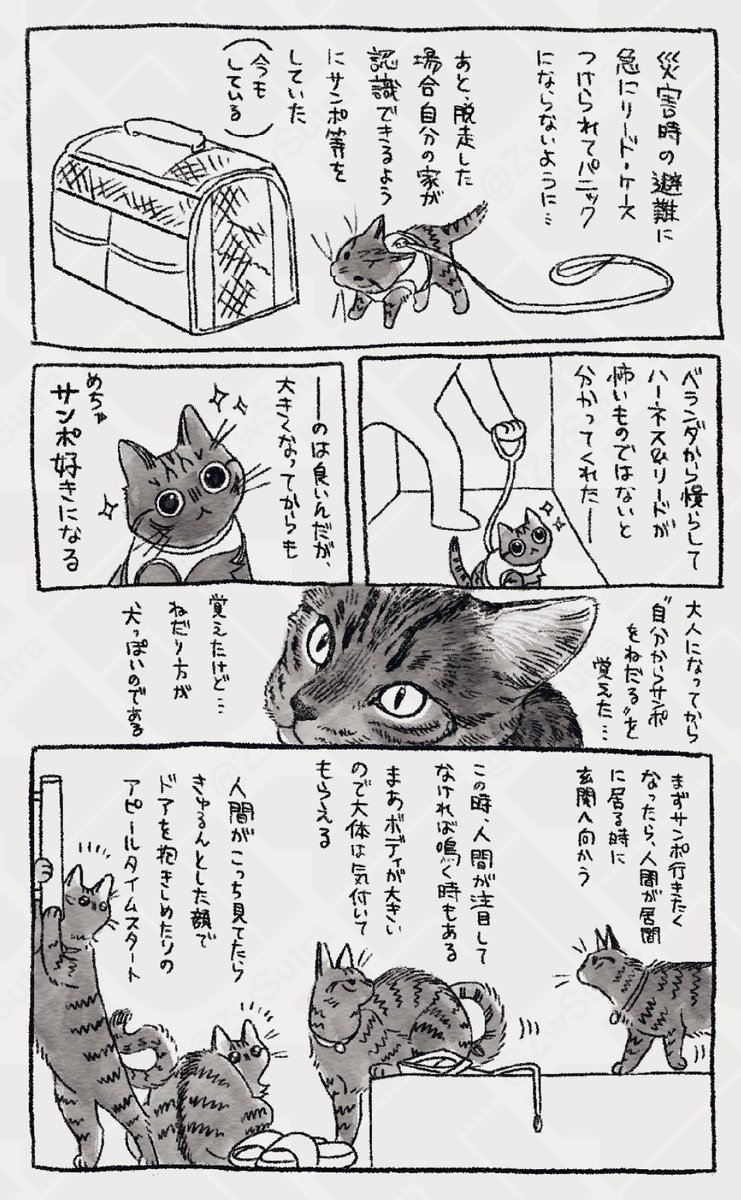 災害時の避難に
急にリード・ケース
つけられてパニック
にならないように…
あと、脱走した
場合自分の家が
認識できるよう
にサンポ等を
していた
(今も
している)
ベランダから慣らして
ハーネス&リードが
怖いものではないと
分かってくれた——
——のは良いんだが、
大きくなってからも
めちゃ
サンポ好きになる
大人になってから
"自分からサンポ
をねだる"を
覚えた…
覚えたけど…
ねだり方が
犬っぽいのである
まずサンポ行きたく
なったら、人間が居間
に居る時に
玄関へ向かう
この時、人間が注目して
なければ鳴く時もある
まあボディが大きい
ので大体は気付いて
もらえる
人間がこっち見てたら
きゅるんとした顔で
ドアを抱きしめたりの
アピールタイムスタート